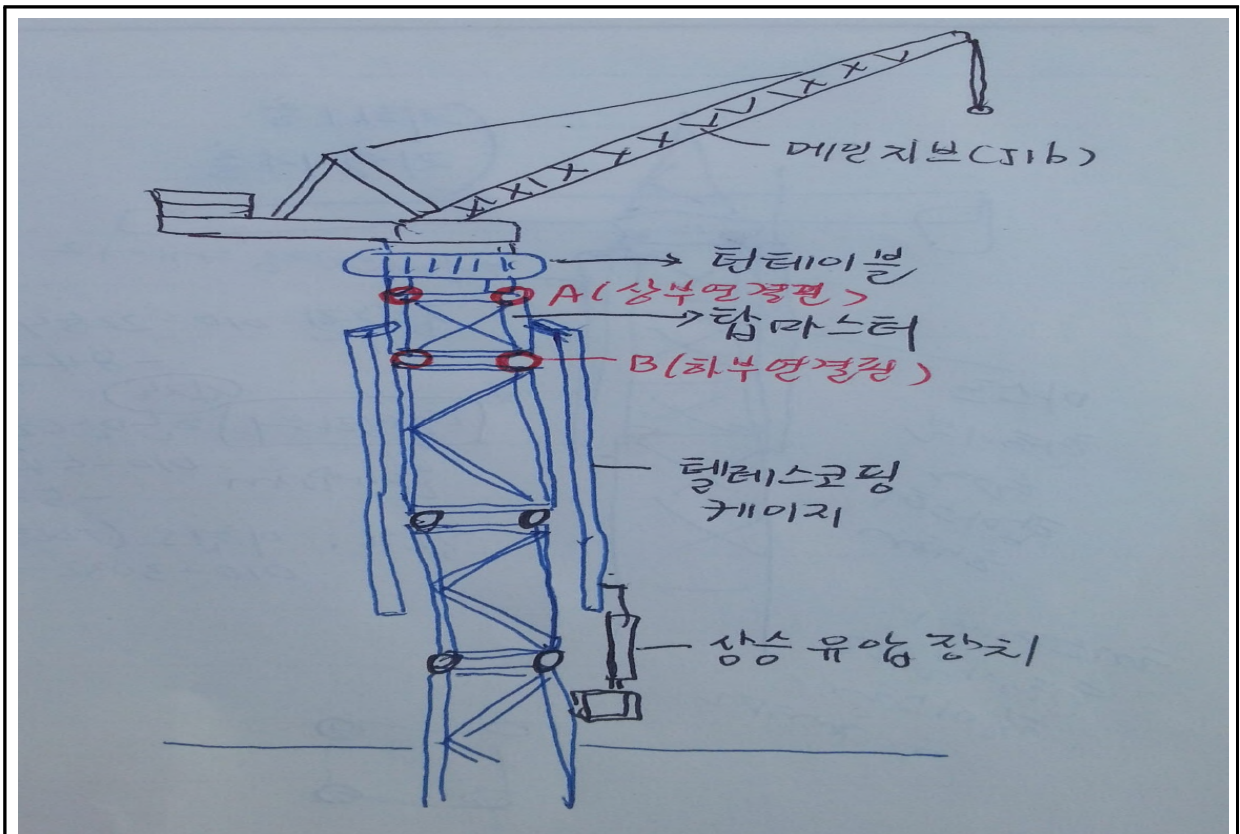 메인지브(JIb)
턴테이블
A(상부연결핀)
탑마스터
B(하부연결핀)
텔레스코핑
케이지
상승 유압장치